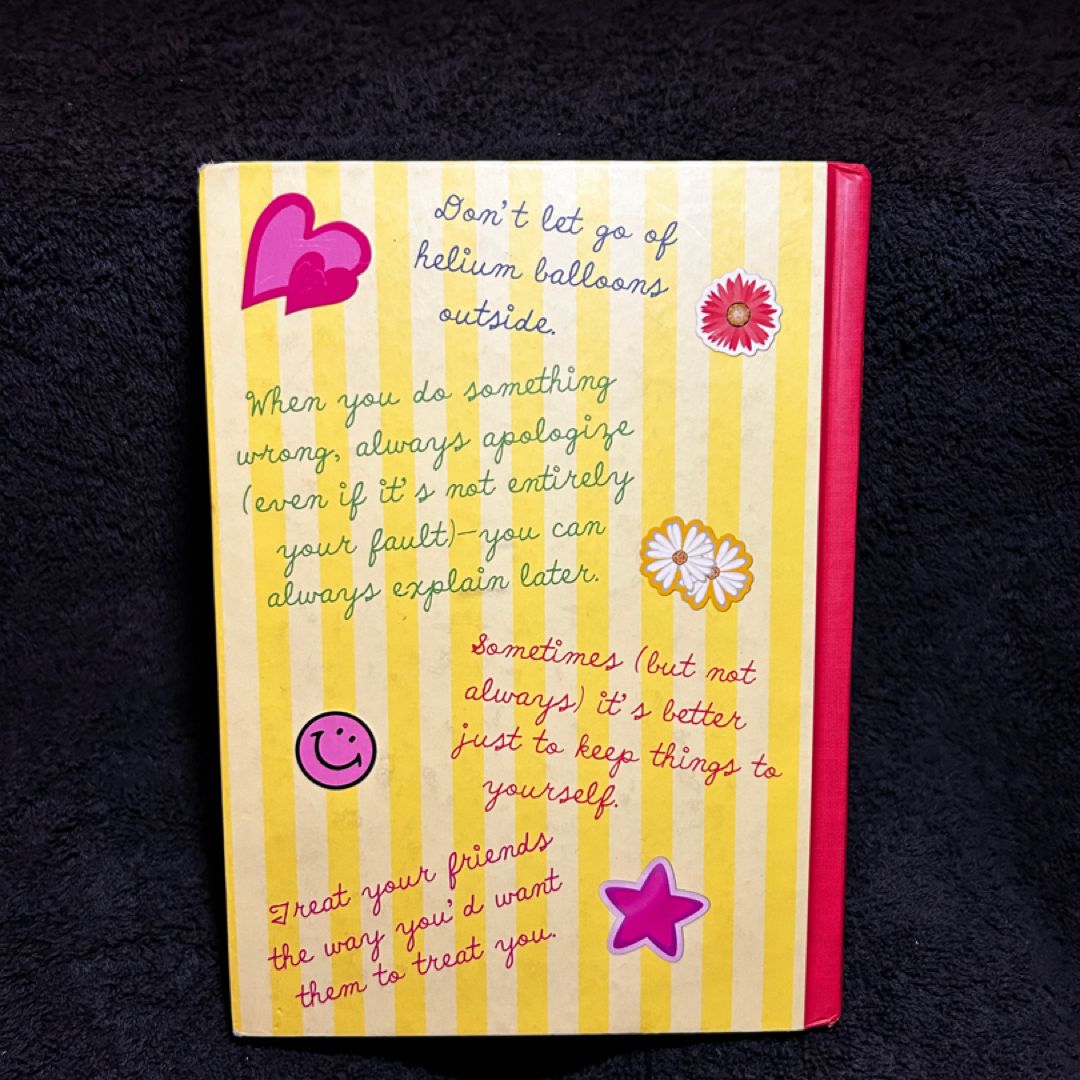 Don't let go of
helium balloons
outside.
When you do something
wrong, always apologize
(even if it's not entirely
your fault)—you can
always explain later.
Sometimes (but not
always) it's better
just to keep things to
yourself.
Treat your friends
the way you'd want
them to treat you.